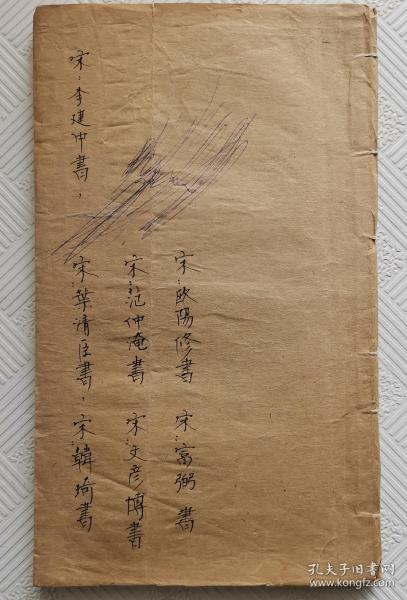 宋:欧陽修書 宋:富弼書
宋:范仲淹書 宋:文彦博書
宋:李建中書, 宋:葉清臣書, 宋:韓琦書
孔夫子旧书网
www.kongfz.com